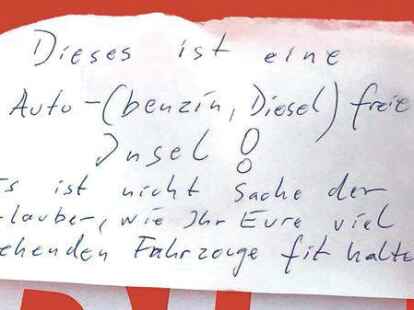 Dieses ist eine
Auto-(benzin, Diesel) freie
Insel!
s ist nicht Sache der
lauber, wie Ihr Eure viel
ehenden Fahrzeuge fit halte